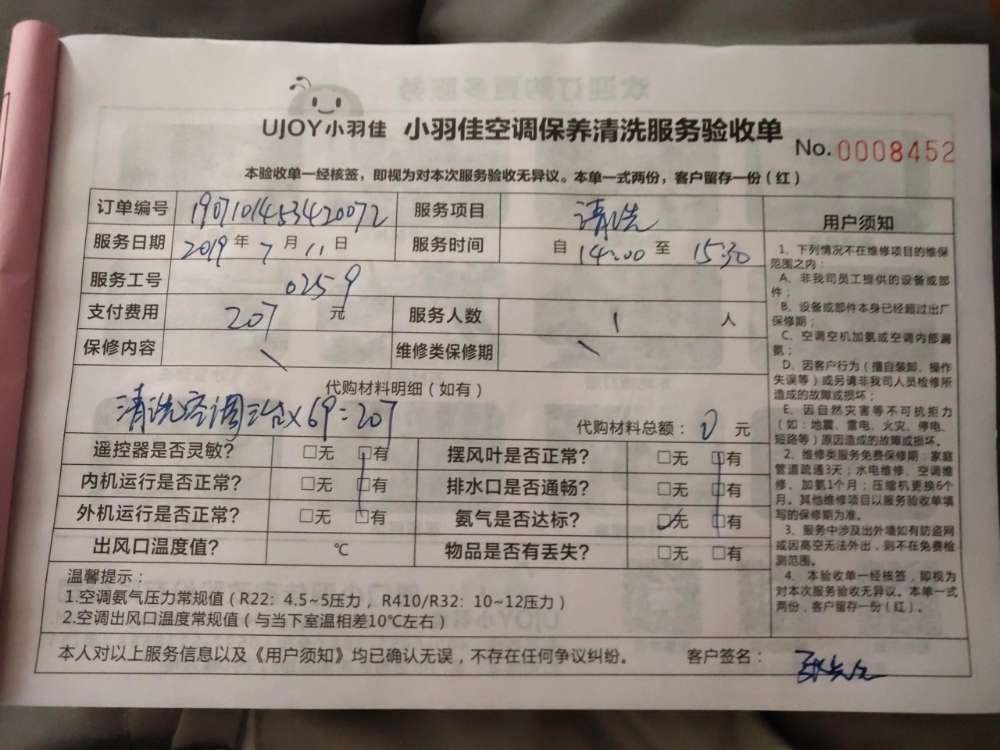 UJOY小羽佳 小羽佳空调保养清洗服务验收单
No.0008452
本验收单一经核签，即视为对本次服务验收无异议。本单一式两份，客户留存一份（红）
订单编号 1907101453420072 服务项目 清洗
服务日期 2019年7月11日 服务时间 自14:00至15:30
服务工号 0259
支付费用 207元 服务人数 1人
保修内容 \ 维修类保修期 \
代购材料明细（如有）
清洗空调3台×69=207
代购材料总额：0元
遥控器是否灵敏？ □无 □有 摆风叶是否正常？ □无 □有
内机运行是否正常？ □无 □有 排水口是否通畅？ □无 □有
外机运行是否正常？ □无 □有 氨气是否达标？ □无 □有
出风口温度值？ ℃ 物品是否有丢失？ □无 □有
温馨提示：
1.空调氨气压力常规值（R22：4.5~5压力，R410/R32：10~12压力）
2.空调出风口温度常规值（与当下室温相差10℃左右）
本人对以上服务信息以及《用户须知》均已确认无误，不存在任何争议纠纷。 客户签名：
用户须知
1、下列情况不在维修项目的维保
范围之内：
A、非我司员工提供的设备或部
件；
B、设备或部件本身已经超过出厂
保修期；
C、空调空机加氨或空调内部漏
氨；
D、因客户行为（擅自装卸、操作
失误等）或另请非我司人员检修所
造成的故障或损坏；
E、因自然灾害等不可抗拒力
（如：地震、雷电、火灾、停电、
短路等）原因造成的故障或损坏。
2、维修类服务免费保修期：家庭
管道疏通3天；水电维修、空调维
修、加氨1个月；压缩机更换6个
月。其他维修项目以服务验收单填
写的保修期为准。
3、服务中涉及出外墙如有防盗网
或因高空无法外出，则不在免费检
测范围。
4、本验收单一经核签，即视为
对本次服务验收无异议。本单一式
两份，客户留存一份（红）。